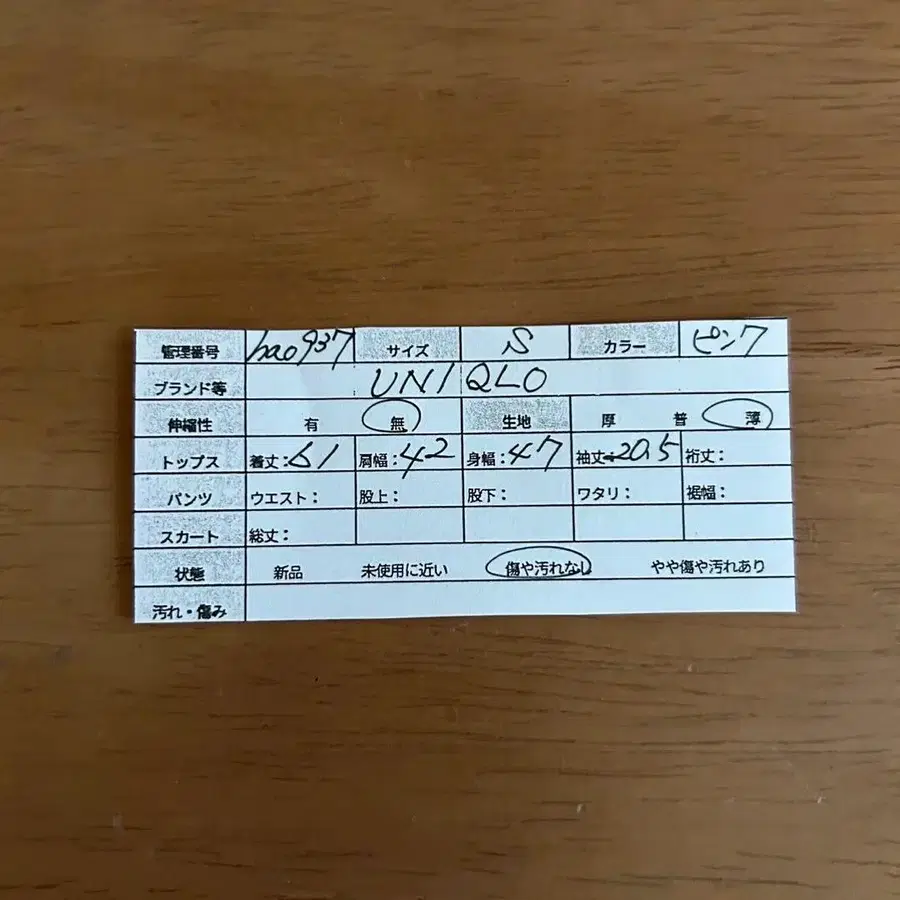 管理番号 hao937 サイズ S カラー ピンク
ブランド等 UNIQLO
伸縮性 有 無 生地 厚 普 薄
トップス 着丈:61 肩幅:42 身幅:47 袖丈:20.5 裄丈:
パンツ ウエスト: 股上: 股下: ワタリ: 裾幅:
スカート 総丈:
状態 新品 未使用に近い 傷や汚れなし やや傷や汚れあり
汚れ・傷み